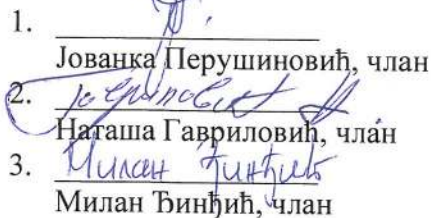 1.
Јованка Перушиновић, члан
2.
Наташа Гавриловић, члан
3. Милан Ђинђић
Милан Ђинђић, члан